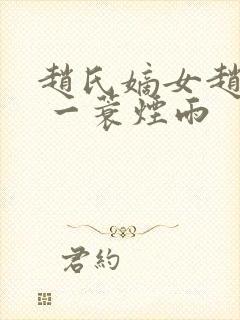 趙氏嫡女趙
一蓑煙雨
君約